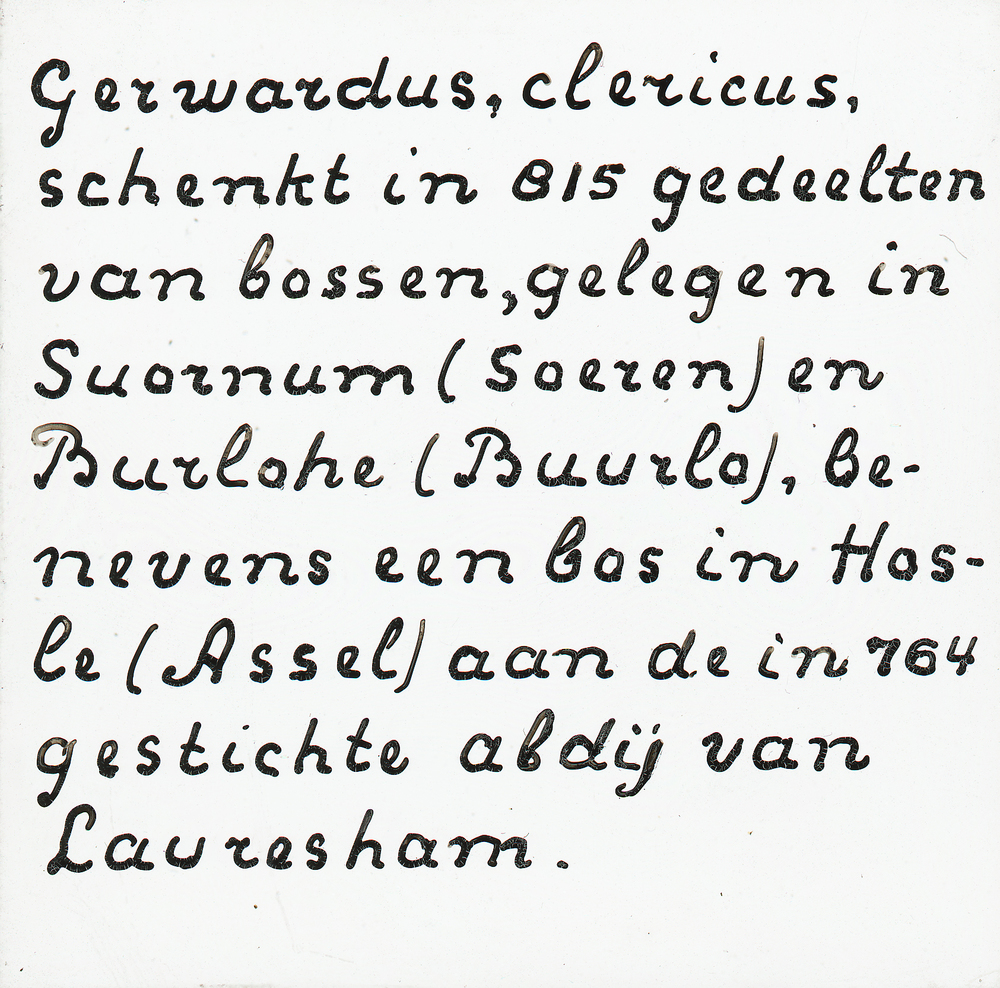 Gerwardus, clericus,
schenkt in 815 gedeelten
van bossen, gelegen in
Suornum (Soeren) en
Burlohe (Buurlo), be-
nevens een bos in Hos-
le (Assel) aan de in 764
gestichte abdij van
Lauresham.